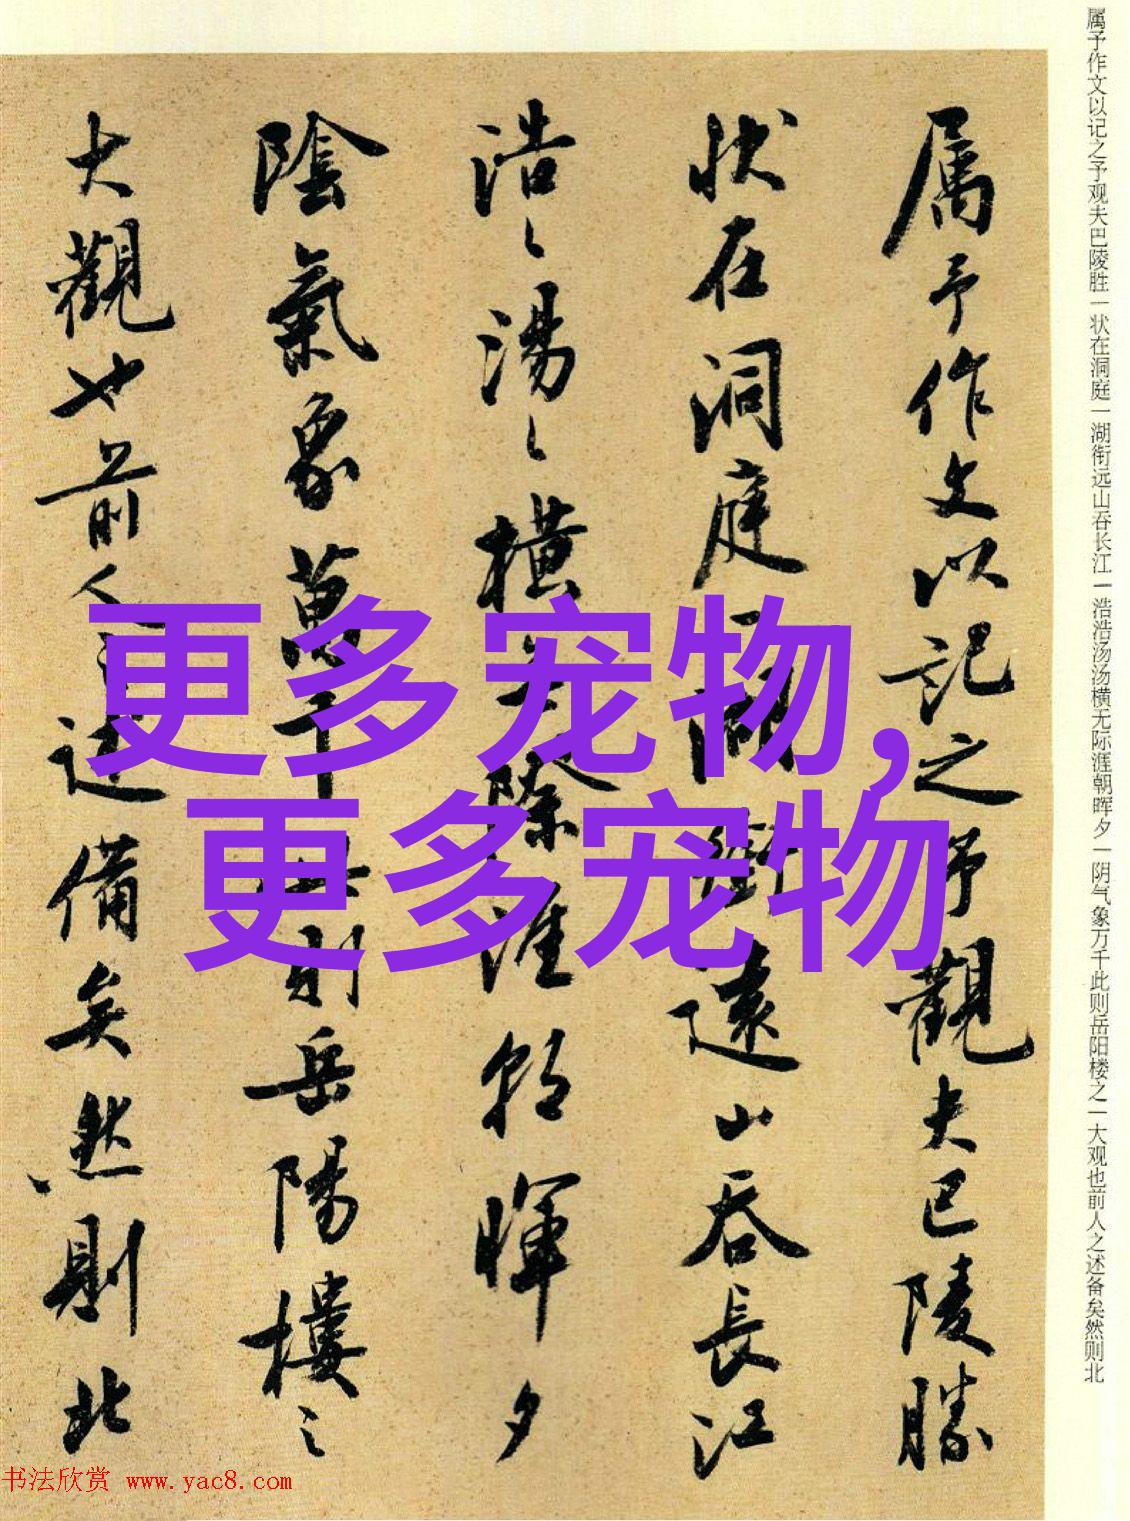 属予作文以记之予观夫巴陵胜一状在洞庭一湖衔远山吞长江一浩浩汤汤横无际涯朝晖夕一阴气象万千此则岳阳楼之一大观也前人之述备矣然则北
属予作文以記之予觀夫巴陵勝
状在洞庭一湖銜遠山吞長江
浩〻湯〻橫無際涯朝暉夕
陰氣象萬千此則岳陽樓之
大觀也前人之述備矣然則北
更多宠物,
更多宠物
书法欣赏 www.yac8.com